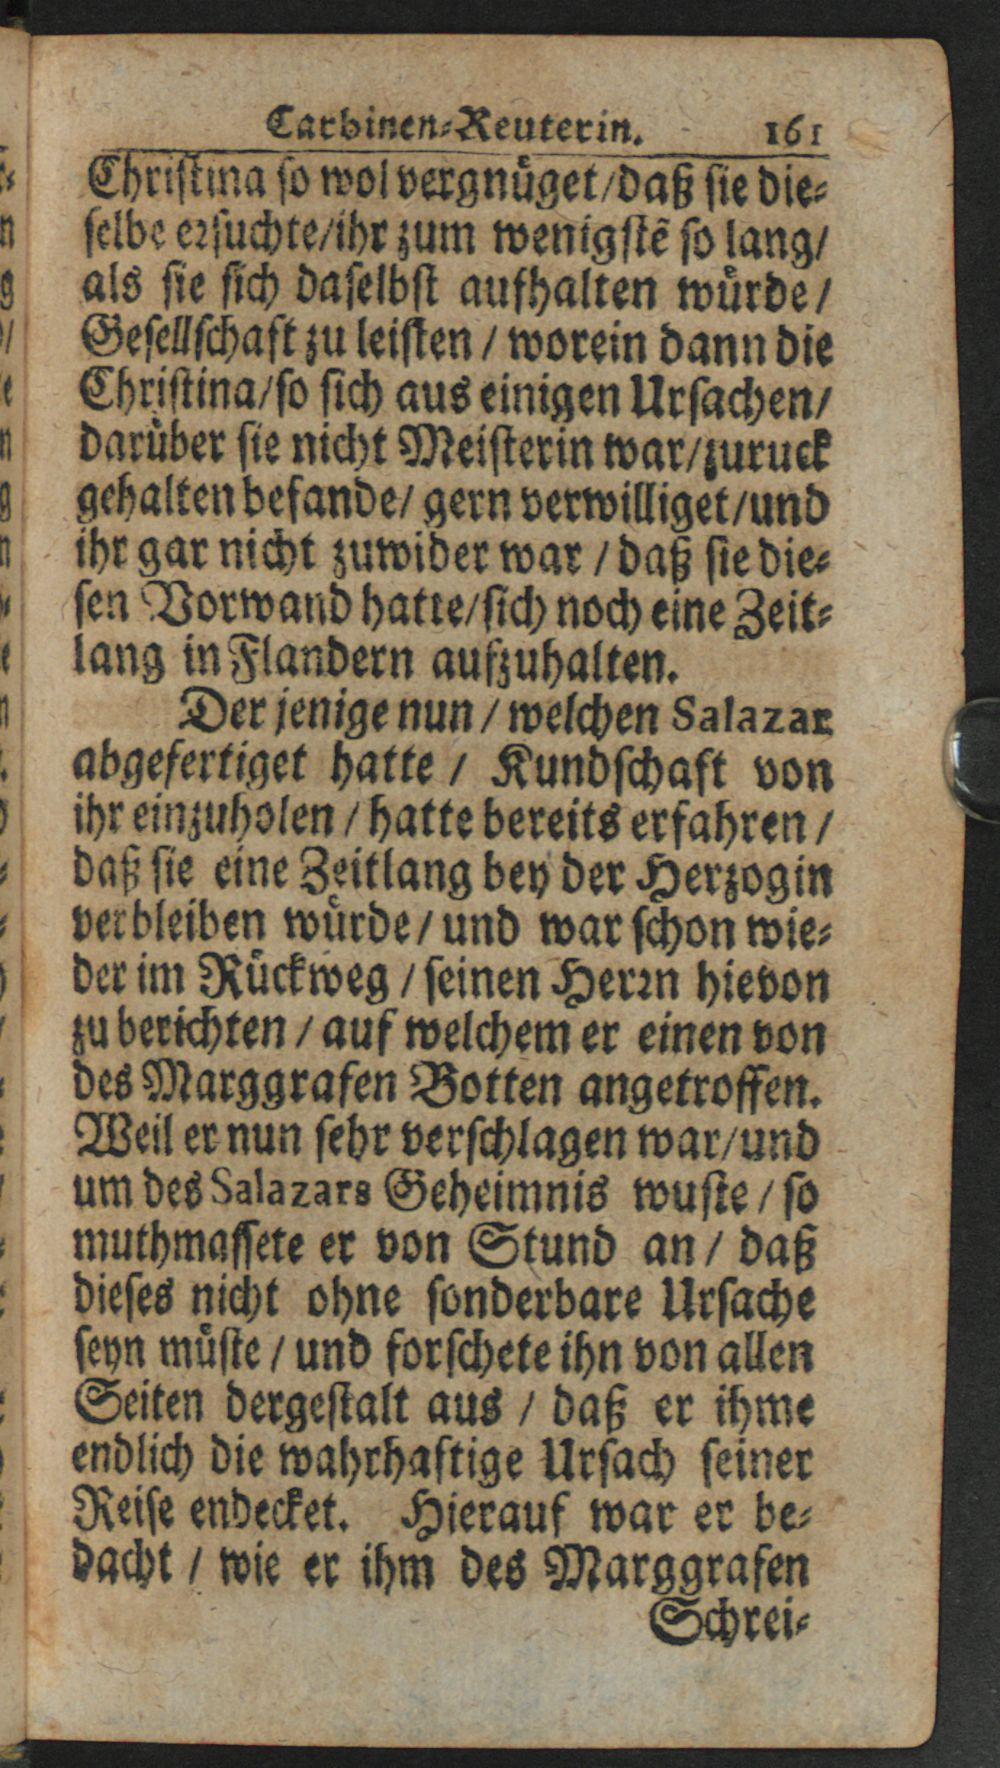 Carbinen-Reuterin. 161
Christina so wol vergnüget/daß sie die-
selbe ersuchte/ihr zum wenigstẽ so lang/
als sie sich daselbst aufhalten würde/
Gesellschaft zu leisten / worein dann die
Christina/so sich aus einigen Ursachen/
darüber sie nicht Meisterin war/zuruck
gehalten befande/ gern verwilliget/und
ihr gar nicht zuwider war / daß sie die-
sen Vorwand hatte/sich noch eine Zeit-
lang in Flandern aufzuhalten.
Der jenige nun / welchen Salazar
abgefertiget hatte / Kundschaft von
ihr einzuholen / hatte bereits erfahren /
daß sie eine Zeitlang bey der Herzogin
verbleiben würde / und war schon wie-
der im Rückweg / seinen Herrn hievon
zu berichten / auf welchem er einen von
des Marggrafen Botten angetroffen.
Weil er nun sehr verschlagen war/und
um des Salazars Geheimnis wuste / so
muthmassete er von Stund an / daß
dieses nicht ohne sonderbare Ursache
seyn müste / und forschete ihn von allen
Seiten dergestalt aus / daß er ihme
endlich die wahrhaftige Ursach seiner
Reise endecket. Hierauf war er be-
dacht / wie er ihm des Marggrafen
Schrei-